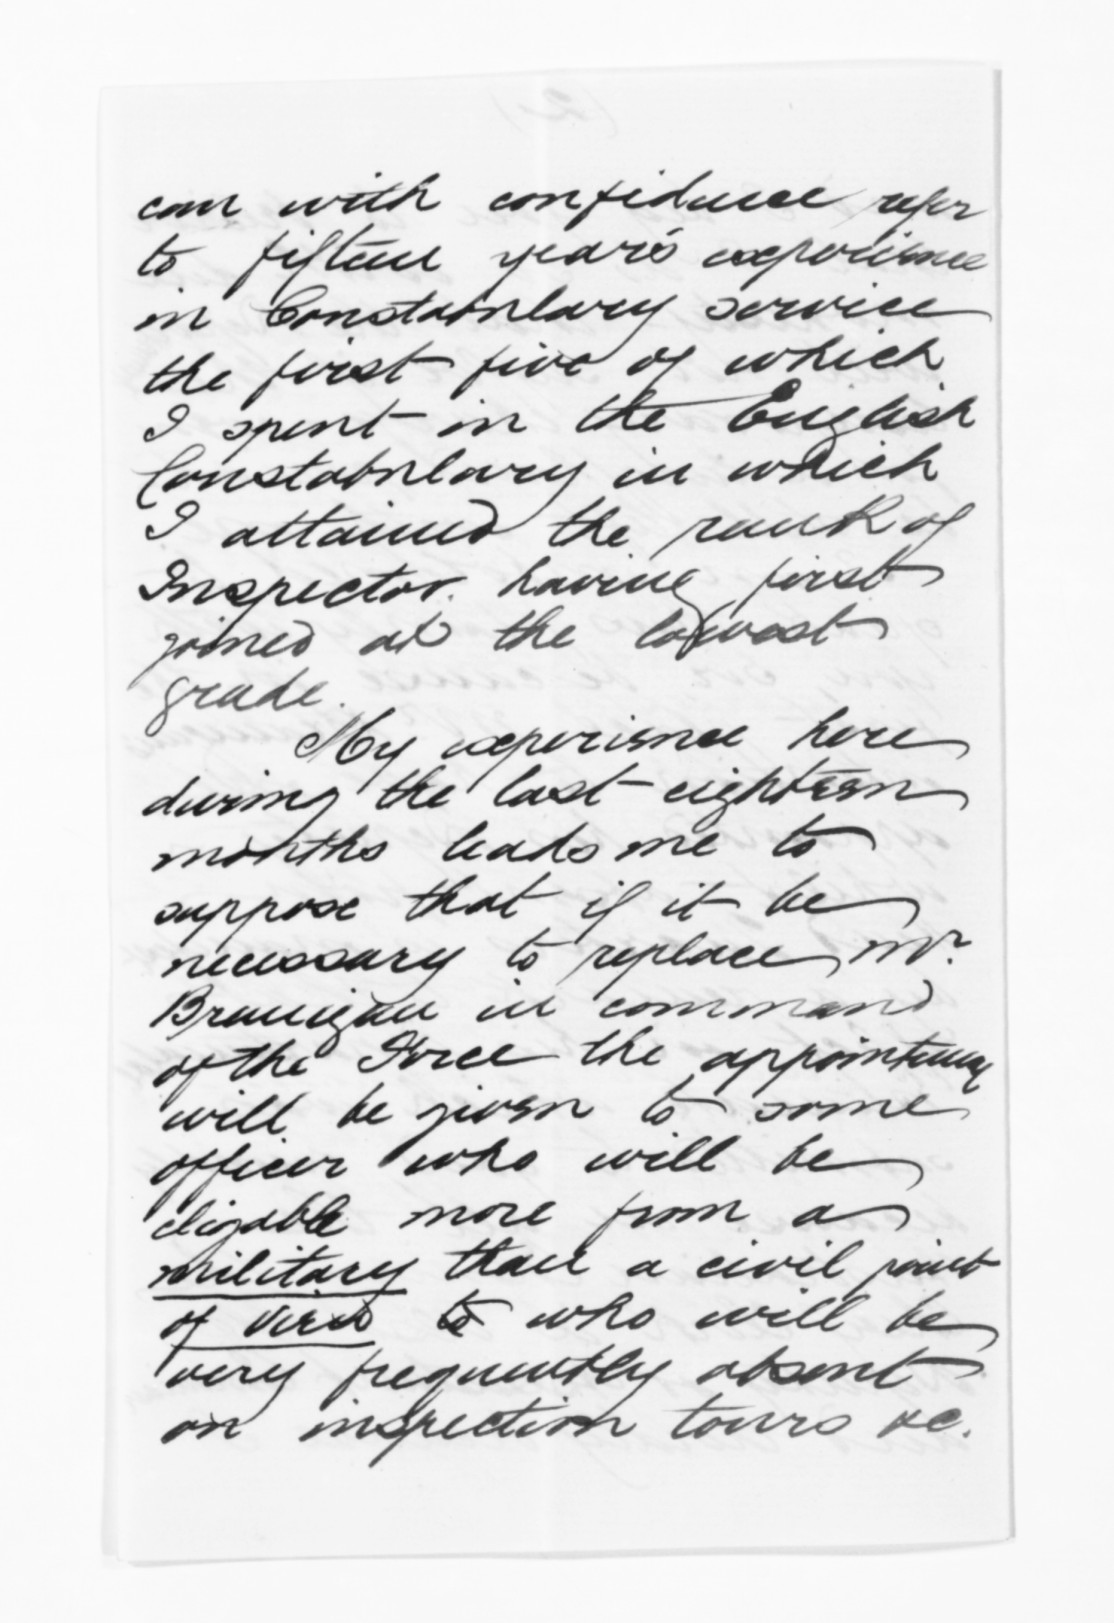 can with confidence refer
to fifteen year's experience
in Constabulary service
the first five of which
I spent in the English
Constabulary in which
I attained the rank of
Inspector. having first
joined at the lowest
grade.
My experience here
during the last eighteen
months leads me to
suppose that if it be
necessary to replace Mr.
Branigan in command
of the Force the appointment
will be given to some
officer who will be
eligable more from a
military than a civil point
of view who will be
very frequently absent
on inspection tours &c.